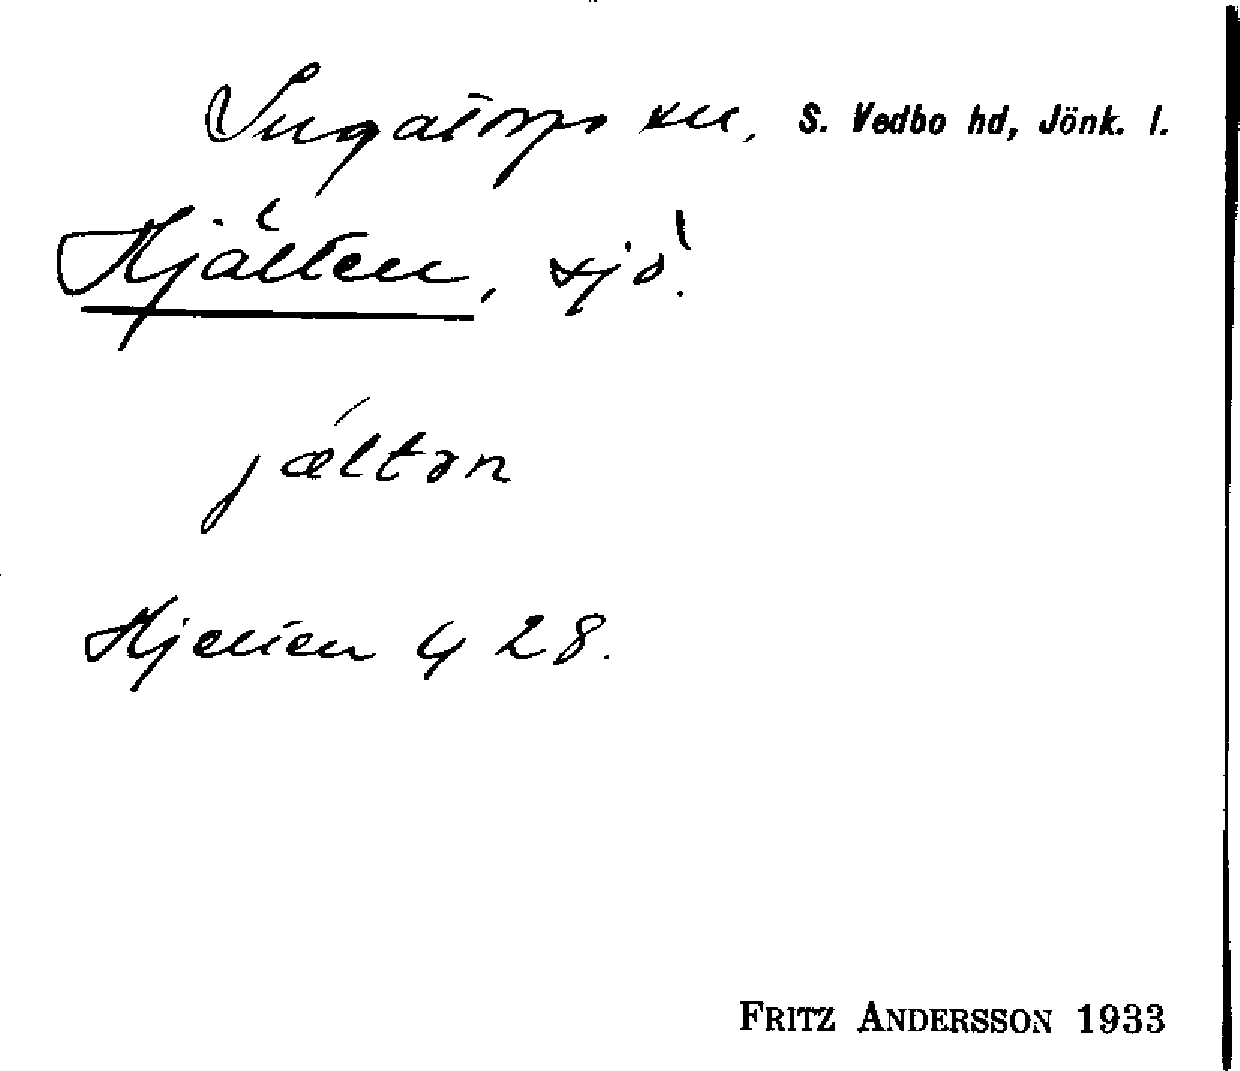 Ingatorps sn, S. Vedbo hd, Jönk. l.
Hjälten, sjö.
jǽltən
Hjelten G 28.
FRITZ ANDERSSON 1933